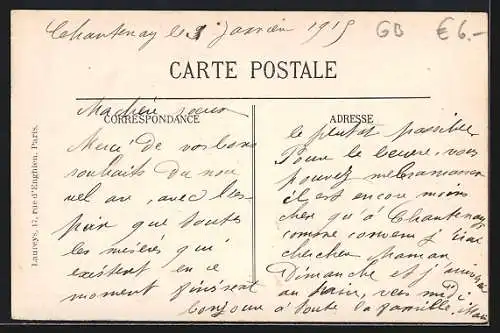 Chantenay le 3 Janvier 1915
GB €6.-
CARTE POSTALE
CORRESPONDANCE
ADRESSE
Ma chère soeur
Merci de vos bons
souhaits du nou
vel an, avec l'es-
poir que toutes
les misères qui
existent en ce
moment finiront
Bonjour à toute la famille,
le plutot possible
Pour le beurre, vous
pouvez me l'amener
il est encore moins
cher qu'à Chantenay
comme convenu j'irai
chercher Maman
Dimanche et j'
au train, vers midi
Laureys, 17, rue d'Enghien, Paris.